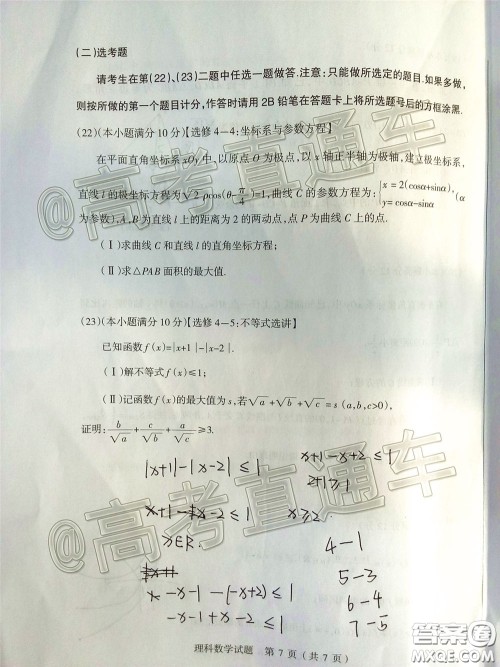 (二)选考题
请考生在第(22)、(23)二题中任选一题做答.注意:只能做所选定的题目.如果多做,
则按所做的第一个题目计分,作答时请用2B铅笔在答题卡上将所选题号后的方框涂黑.
(22)(本小题满分10分)【选修4-4:坐标系与参数方程】
在平面直角坐标系xOy中,以原点O为极点,以x轴正半轴为极轴,建立极坐标系,
直线l的极坐标方程为√2 ρcos(θ-π/4)=1,曲线C的参数方程为:{x=2(cosα+sinα), y=cosα-sinα (α
为参数).A、B为直线l上的距离为2的两动点,点P为曲线C上的点.
(Ⅰ)求曲线C和直线l的直角坐标方程;
(Ⅱ)求△PAB面积的最大值.
(23)(本小题满分10分)【选修4-5:不等式选讲】
已知函数f(x)=|x+1|-|x-2|.
(Ⅰ)解不等式f(x)≤1;
(Ⅱ)记函数f(x)的最大值为s,若√a+√b+√c=s(a,b,c>0),
证明:b/√a+c/√b+a/√c≥3.
|x+1|-|x-2|≤1
x+1-x+2≤1
2+1≥1
x+1-x-2≤1
x≥2
x∈R.
4-1
5-3
x -x-1-(-x+2)≤1
6-4
-x-1+x-2≤1
7-5
理科数学试题 第7页(共7页)
@高考直通车
@高考直通车
答案圈
MXQE.COM